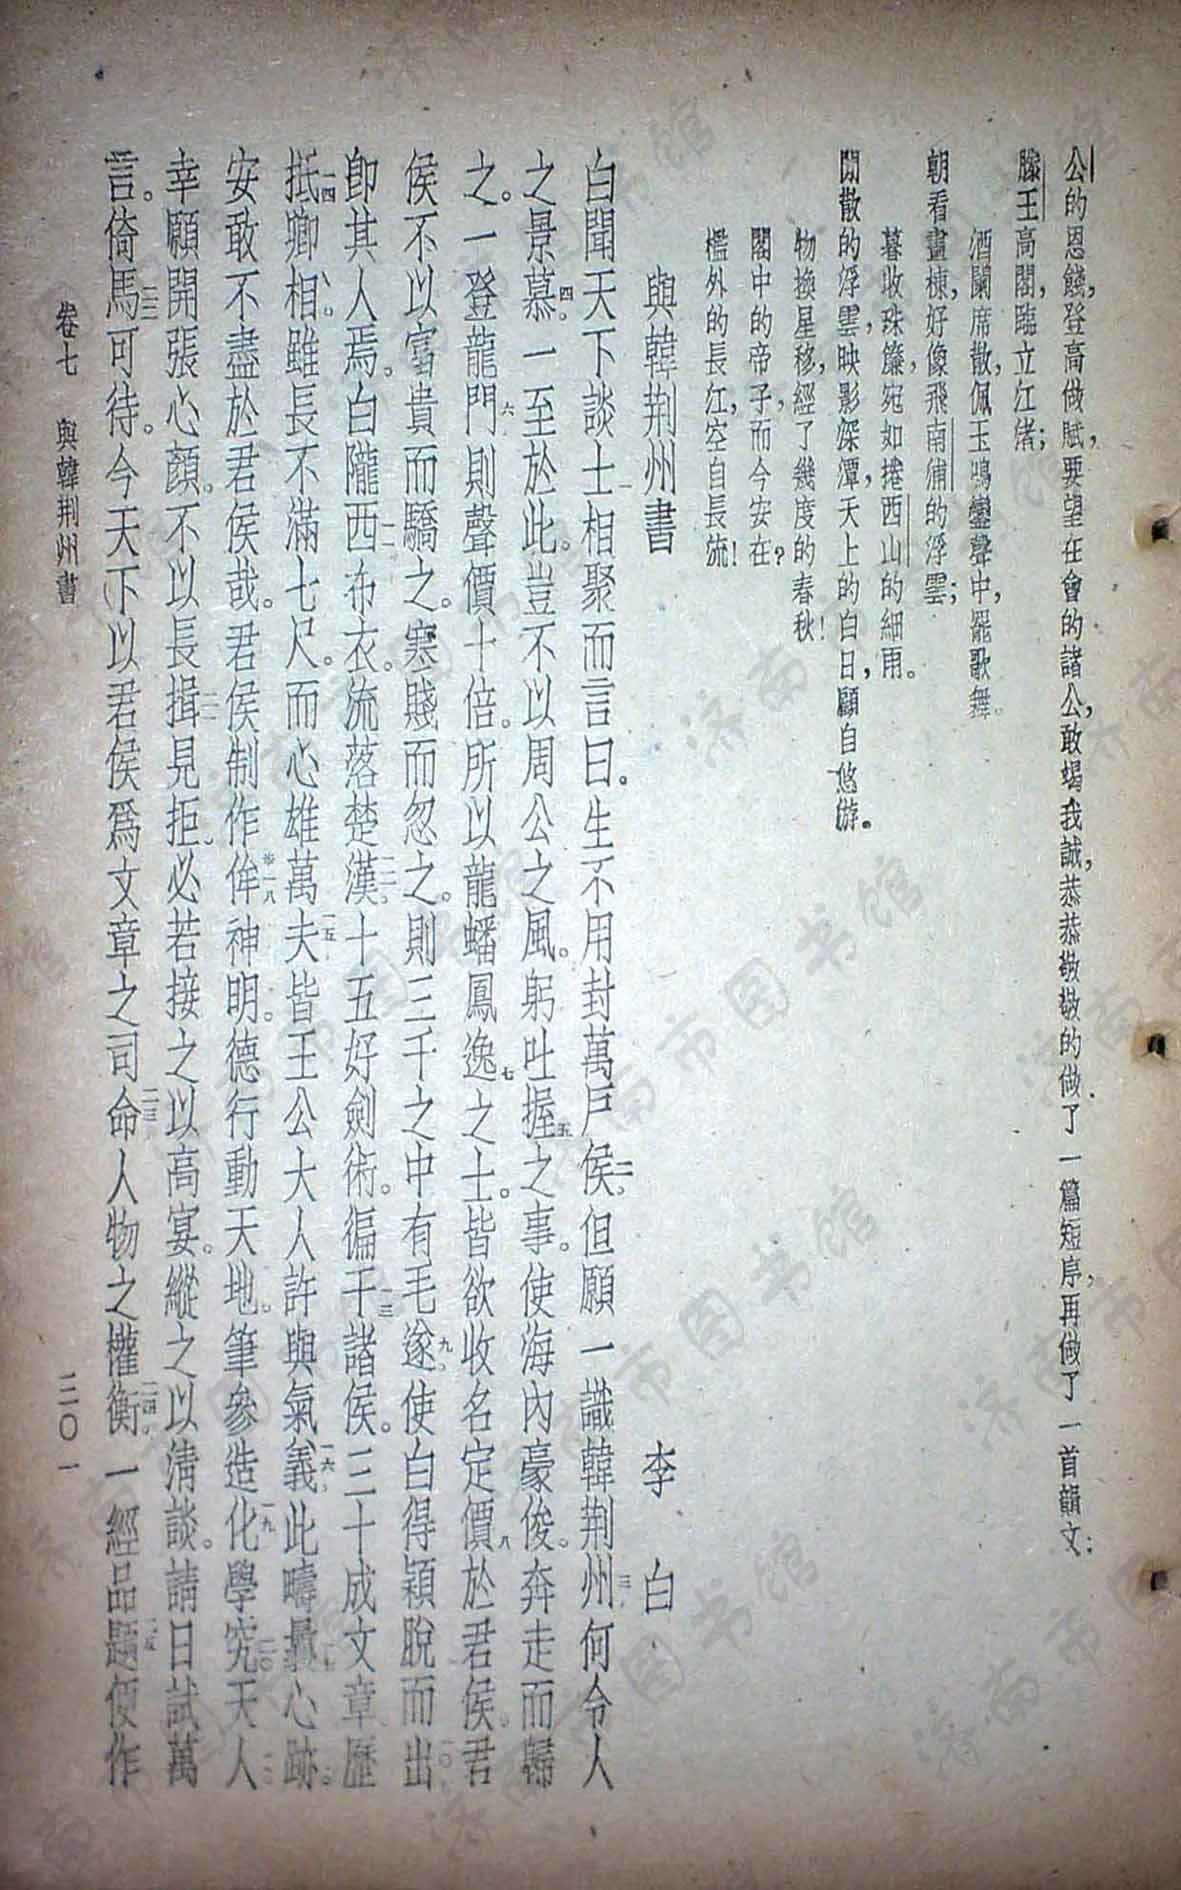 公的恩餞,登高做賦,要望在會的諸公,敢竭我誠,恭恭敬敬的做了一篇短序,再做了一首韻文:
滕王高閣,臨立江渚;
酒闌席散,佩玉鳴鑾聲中,罷歌舞。
朝看畫棟,好像飛南浦的浮雲;
暮收珠簾,宛如捲西山的細雨。
閒散的浮雲,映影深潭,天上的白日,顧自悠游。
物換星移,經了幾度的春秋!
閣中的帝子,而今安在?
檻外的長江,空自長流!
與韓荆州書 李白
白聞天下談士一相聚而言曰。生不用封萬戶侯二。但願一識韓荆州三何令人
之景慕四。一至於此。豈不以周公之風。躬吐握五之事。使海內豪俊。奔走而歸
之。一登龍門六則聲價十倍。所以龍蟠鳳逸七之士。皆欲收名定價八於君侯。君
侯不以富貴而驕之。寒賤而忽之。則三千之中有毛遂九。使白得穎脫而出一〇
卽其人焉。白隴西一一布衣。流落楚漢一二。十五好劍術。徧干一三諸侯。三十成文章。歷
抵一四卿相。雖長不滿七尺。而心雄萬夫一五皆王公大人許與氣義一六。此疇曩一七心跡。
安敢不盡於君侯哉。君侯制作侔一八神明。德行動天地。筆參造化一九學究二〇天人
幸願開張心顏。不以長揖二一見拒。必若接之以高宴。縱之以清談。請日試萬
言。倚馬二二可待。今天下以君侯爲文章之司命二三人物之權衡二四。一經品題二五便作
卷七 與韓荆州書 三〇一
濟南市图书馆